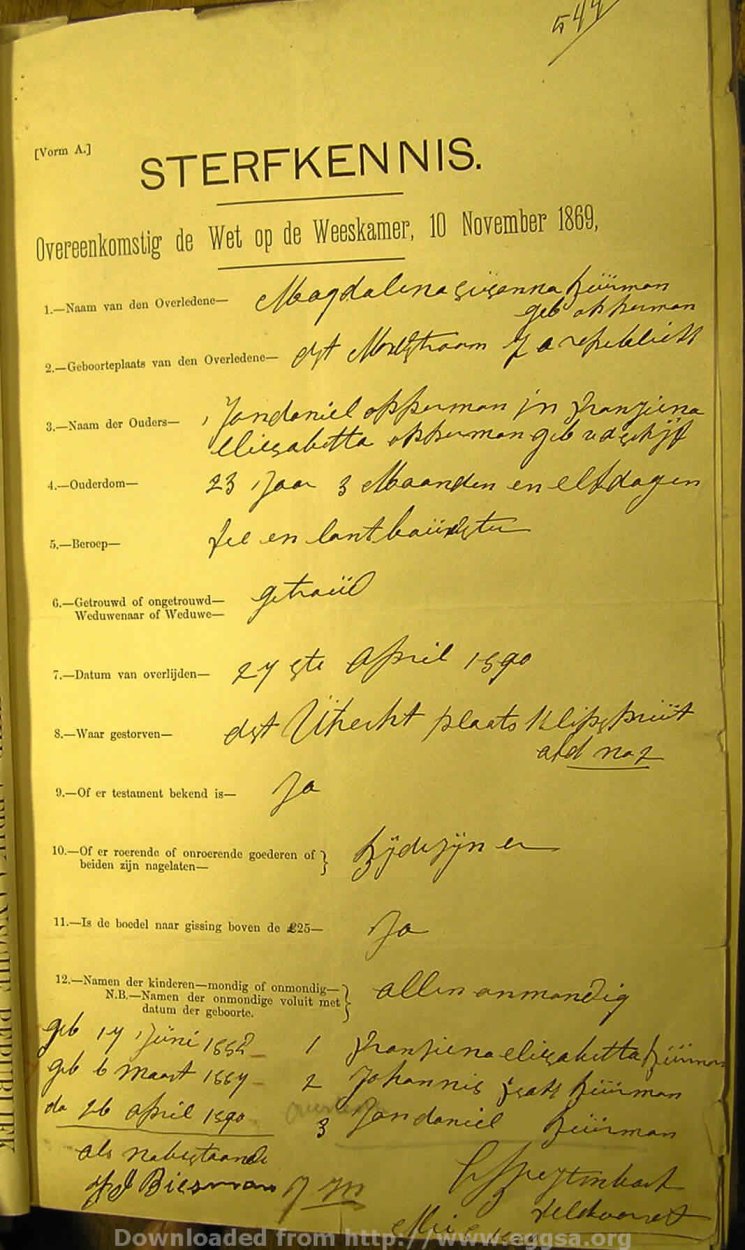 544
[Vorm A.]
STERFKENNIS.
Overeenkomstig de Wet op de Weeskamer, 10 November 1869,
1.—Naam van den Overledene— Magdalena Susanna Buurman
geb opperman
2.—Geboorteplaats van den Overledene— dst Z a republiek
3.—Naam der Ouders— Jan daniel opperman en
Eliesabetta opperman geb
4.—Ouderdom— 23 Jaar 3 Maanden en elf dagen
5.—Beroep— fee en lantbouwster
6.—Getrouwd of ongetrouwd— getroud
Weduwenaar of Weduwe—
7.—Datum van overlijden— 27 ste April 1890
8.—Waar gestorven— dst Utrecht plaats Klipspruit
no 2
9.—Of er testament bekend is— Ja
10.—Of er roerende of onroerende goederen of }
beiden zijn nagelaten— Byde zyn er
11.—Is de boedel naar gissing boven de £25— Ja
12.—Namen der kinderen—mondig of onmondig—
N.B.—Namen der onmondige voluit met } allen onmondig
datum der geboorte.
geb 17 Juni 1 eliesabetta Buurman
geb 6 Maart 2 Johannis Buurman
do 26 april 1890 3 Jan daniel Buurman
als nabestaande
Biesman
Veldcornet
Downloaded from http://www.eggsa.org